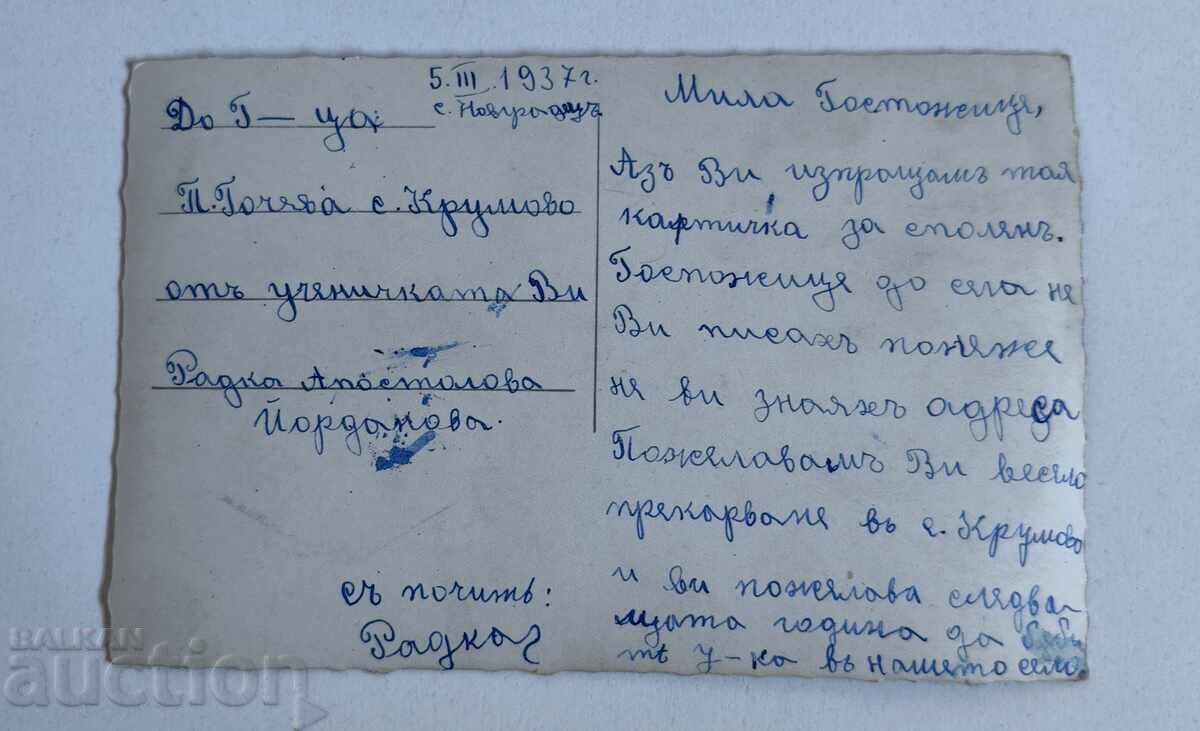 5.III.1937 г.
с. Новградецъ
До Г-ца:
П. Гочева с. Крумово
отъ ученичката Ви
Радка Апостолова
Йорданова.
Мила Госпожице,
Азъ Ви изпращамъ тая
картичка за споменъ.
Госпожице до сега не
Ви писахъ понеже
не ви знаяхъ адреса
Пожелавамъ Ви весело
прекарване въ с. Крумово
и ви пожелава следва-
щата година да
те у-ка въ нашето село.
съ почить:
Радка
BALKAN
auction